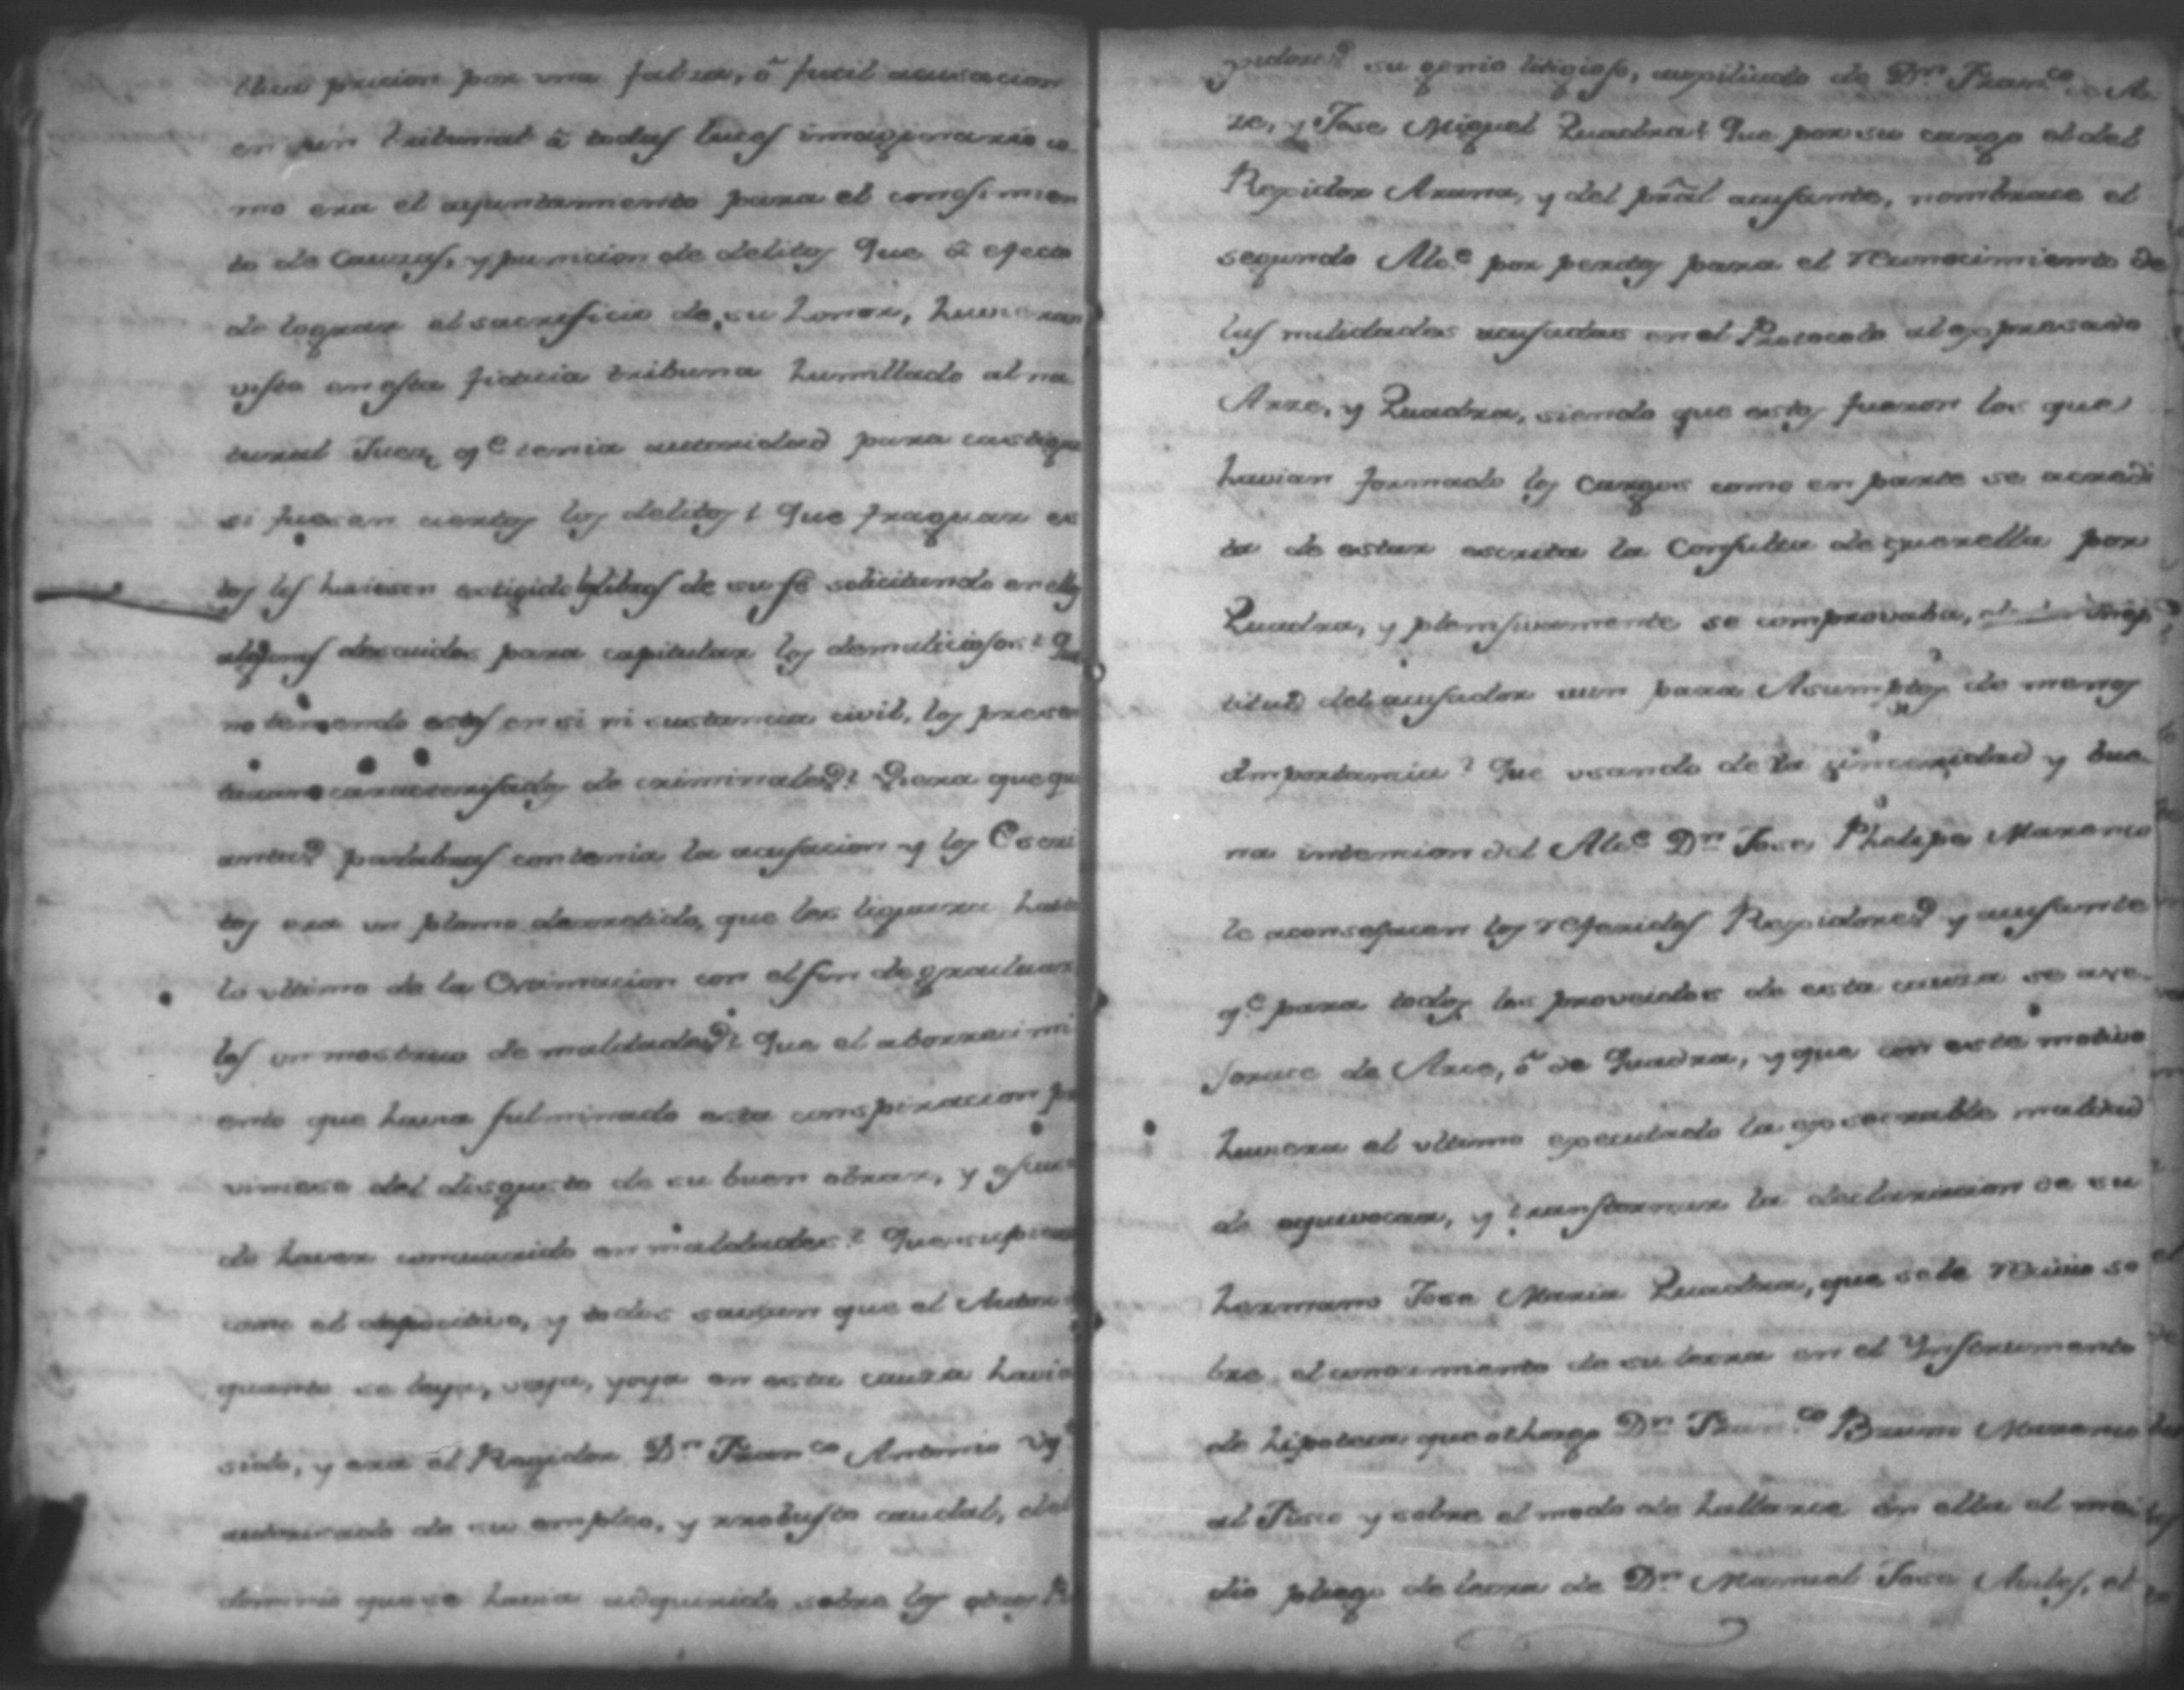 blica pricion por una falza, ô futil acusacion
en un tribunal â todas luces imaginario co
mo era el ayuntamiento para el conosimien
to de Causas, y punicion de delitos Que â efecto
de lograr el sacrificio de su honor, huvieran
visto en esta ficticia tribuna humillado al na
tural Juez qe tenia autoridad para castigar
si fuesen ciertos los delitos? Que fraguar es
tos les huviesen exsigido los libros de su fê solicitando en ellos
algunos descuidos para capitular los de maliciosos? Que
no teniendo estos en si ni sustancia civil, los presen
taran caracterisados de criminales? Diera que qu
antas palabras contenia la acusacion y los Escri
tos era un plomo derretido, que les liquara hasta
lo ultimo de la con el fin de graduar
los un mostruo de maldades? Que el aborrecimi
ento que havia fulminado esta conspiracion pro
viniese del disgusto de su buen obrar, y
de haver convenido en maldades? Que supieran
como el depocitivo, y todos savian que el Autor
quanto se leyo, oya en esta causa havia
sido, y era el Regidor Dn Franco Antonio
autorisado de su empleo, y rrobusto caudal, del
dominio que se havia adquirido sobre los otros Re
gidores su genio litigioso, auxiliado de Dn Franco A
rze, y Jose Miguel Quadra? Que por su cargo el del
Regidor Arauna, y del pral acusante, nombrace el
segundo Alce por peritos para el reconocimiento de
las nulidades acusadas en el Protocolo al expresado
Arze, y Quadra, siendo que estos fueron los que
havian formado los cargos como en parte se acredi
ta de estar escrita la Consulta de querella por
Quadra, y plenisivamente se comprovaba, Inep
titud del acusador aun para Asumptos de menos
Importancia? Que usando de la sinceridad y bue
na intencion del Alce Dn Jose Phelipe Maramo
le aconsejacen los referidos Regidores y acusante
qe para todos los proveidos de esta causa se ase
sorace de Arce, ô de Quadra, y que con este motivo
huviera el ultimo executado la exsecrable maldad
de equivocar, y transformar la declaracion de su
hermano Jose Maria Quadra, que se le reciviô so
bre el conocimiento de su letra en el Ynstrumento
de hipoteca que othorgo Dn Franco Bruno Maramo
al Fisco y sobre el modo de hallarce en ella el me
dio pliego de letra de Dn Manuel Jose Aviles, el